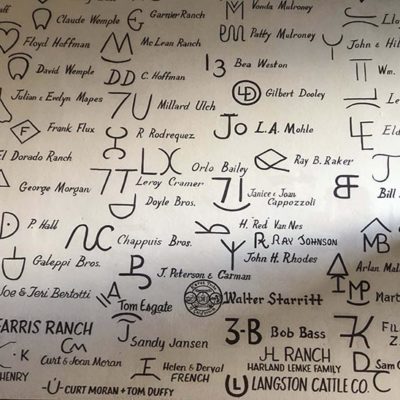 Claude Wemple
Garnier Ranch
Vonda Mulroney
Floyd Hoffman
McLean Ranch
Patty Mulroney
John & Hil
David Wemple
DD C. Hoffman
13 Bea Weston
Wm.
Julian & Evelyn Mapes
7U Millard Ulch
LD Gilbert Dooley
F Frank Flux
R. Rodreguez
Jo L.A. Mohle
El Dorado Ranch
LX Orlo Bailey
Ray B. Raker
George Morgan
7T Leroy Cramer
Doyle Bros.
7I Janice & Joan
Cappozzoli
Bill
P. Hall
NC Chappuis Bros.
H. "Red" Van Nes
R. Ray Johnson
John H. Rhodes
MB
Galeppi Bros.
J. Peterson & Carman
Arlan
Joe & Teri Bertotti
Tom Esgate
Walter Starritt
MP Mart
Farris Ranch
J Sandy Jansen
3-B Bob Bass
Curt & Joan Moran
JL Ranch
Harland Lemke Family
Henry
Helen & Derval
French
Sam
-U- Curt Moran + Tom Duffy
Langston Cattle Co.